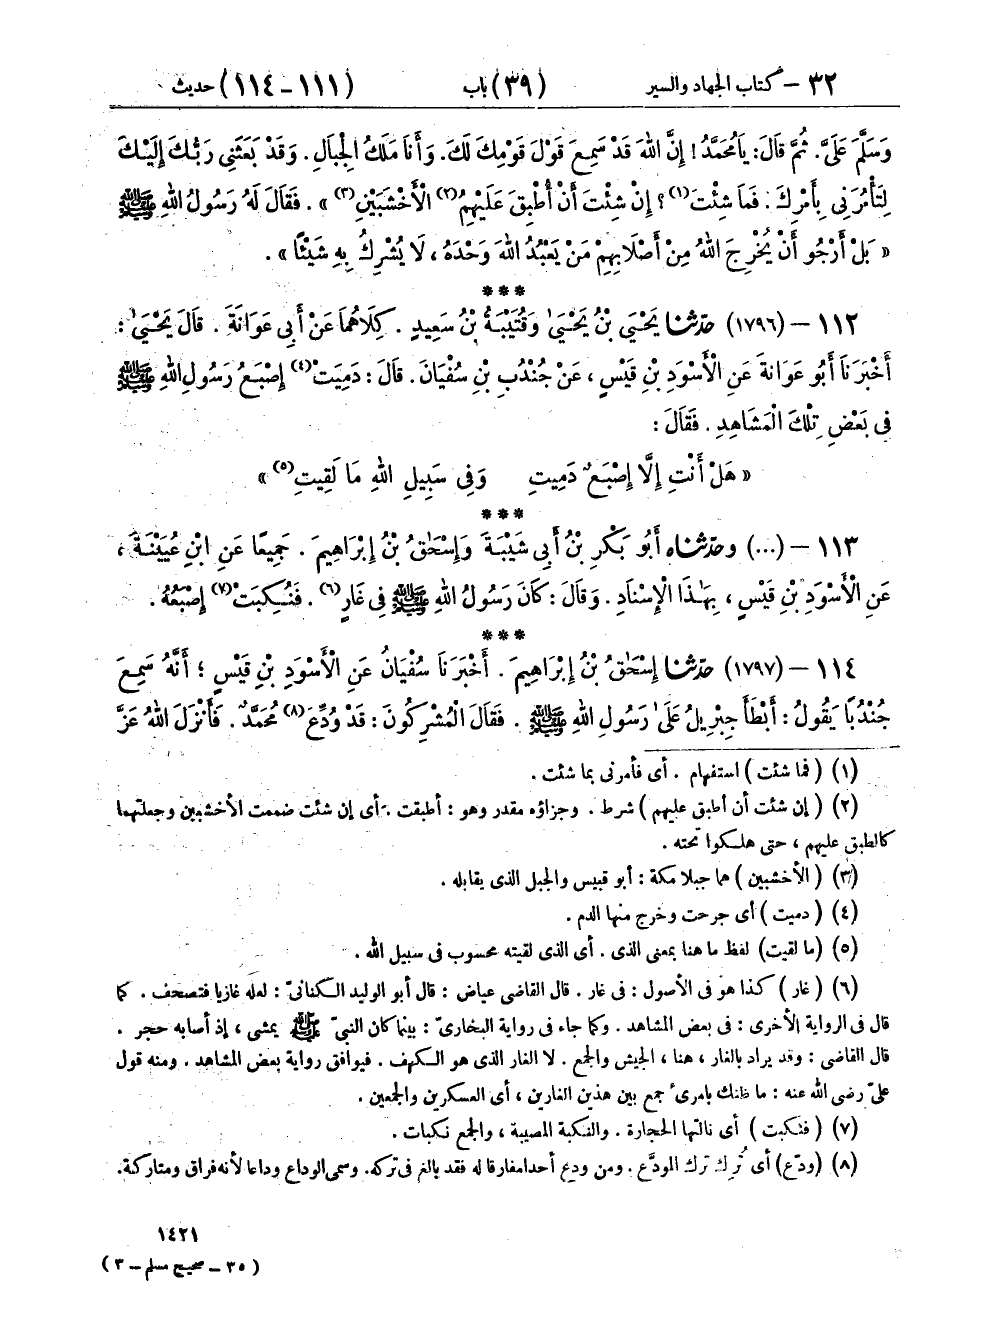 ٣٢ - كتاب الجهاد والسير (٣٩) باب (١١١-١١٤) حديث
وَسَلَّمَ عَلَىَّ. ثُمَّ قَالَ: يَا مُحَمَّدُ! إِنَّ اللهَ قَدْ سَمِعَ قَوْلَ قَوْمِكَ لَكَ. وَأَنَا مَلَكُ الْجِبَالِ. وَقَدْ بَعَثَنِى رَبُّكَ إِلَيْكَ
لِتَأْمُرَنِى بِأَمْرِكَ. فَمَا شِئْتَ(١)؟ إِنْ شِئْتَ أَنْ أُطْبِقَ عَلَيْهِمُ(٢) الْأَخْشَبَيْنِ(٣)». فَقَالَ لَهُ رَسُولُ اللهِ ﷺ
« بَلْ أَرْجُو أَنْ يُخْرِجَ اللهُ مِنْ أَصْلَابِهِمْ مَنْ يَعْبُدُ اللهَ وَحْدَهُ، لَا يُشْرِكُ بِهِ شَيْئًا ».
***
١١٢ - (١٧٩٦) حَدَّثَنَا يَحْيَىٰ بْنُ يَحْيَىٰ وَقُتَيْبَةُ بْنُ سَعِيدٍ. كِلَاهُمَا عَنْ أَبِى عَوَانَةَ. قَالَ يَحْيَىٰ:
أَخْبَرَنَا أَبُو عَوَانَةَ عَنِ الْأَسْوَدِ بْنِ قَيْسٍ، عَنْ جُنْدُبِ بْنِ سُفْيَانَ. قَالَ: دَمِيَتْ(٤) إِصْبَعُ رَسُولِ اللهِ ﷺ
فِى بَعْضِ تِلْكَ الْمَشَاهِدِ. فَقَالَ:
« هَلْ أَنْتِ إِلَّا إِصْبَعٌ دَمِيتِ وَفِى سَبِيلِ اللهِ مَا لَقِيتِ(٥) »
***
١١٣ - (...) وحَدَّثَنَاه أَبُو بَكْرِ بْنُ أَبِى شَيْبَةَ وَإِسْحَاقُ بْنُ إِبْرَاهِيمَ. جَمِيعًا عَنِ ابْنِ عُيَيْنَةَ،
عَنِ الْأَسْوَدِ بْنِ قَيْسٍ، بِهَٰذَا الْإِسْنَادِ. وَقَالَ: كَانَ رَسُولُ اللهِ ﷺ فِى غَارٍ(٦). فَنُكِبَتْ(٧) إِصْبَعُهُ.
***
١١٤ - (١٧٩٧) حَدَّثَنَا إِسْحَاقُ بْنُ إِبْرَاهِيمَ. أَخْبَرَنَا سُفْيَانُ عَنِ الْأَسْوَدِ بْنِ قَيْسٍ؛ أَنَّهُ سَمِعَ
جُنْدُبًا يَقُولُ: أَبْطَأَ جِبْرِيلُ عَلَىٰ رَسُولِ اللهِ ﷺ. فَقَالَ الْمُشْرِكُونَ: قَدْ وُدِّعَ(٨) مُحَمَّدٌ. فَأَنْزَلَ اللهُ عَزَّ
(١) (فما شئت) استفهام. أى فأمرنى بما شئت.
(٢) (إن شئت أن أطبق عليهم) شرط. وجزاؤه مقدر وهو: أطبقت. أى إن شئت ضممت الأخشبين وجعلتهما
كالطبق عليهم، حتى هلكوا تحته.
(٣) (الأخشبين) هما جبلا مكة: أبو قبيس والجبل الذى يقابله.
(٤) (دميت) أى جرحت وخرج منها الدم.
(٥) (ما لقيت) لفظ ما هنا بمعنى الذى. أى الذى لقيته محسوب فى سبيل الله.
(٦) (غار) كذا هو فى الأصول: فى غار. قال القاضى عياض: قال أبو الوليد الكنانىّ: لعله غازيا فتصحف. كما
قال فى الرواية الأخرى: فى بعض المشاهد. وكما جاء فى رواية البخارىّ: بينما كان النبىّ ﷺ يمشى، إذ أصابه حجر.
قال القاضى: وقد يراد بالغار، هنا، الجيش والجمع. لا الغار الذى هو الكهف. فيوافق رواية بعض المشاهد. ومنه قول
علىّ رضى الله عنه: ما ظنك بامرئ جمع بين هذين الغارين، أى العسكرين والجمعين.
(٧) (فنكبت) أى نالتها الحجارة. والنكبة المصيبة، والجمع نكبات.
(٨) (ودّع) أى تُرك ترك المودَّع. ومن ودع أحدا مفارقا له فقد بالغ فى تركه. وسمى الوداع وداعا لأنه فراق ومتاركة.
١٤٢١
(٣٥ - صحيح مسلم - ٣)